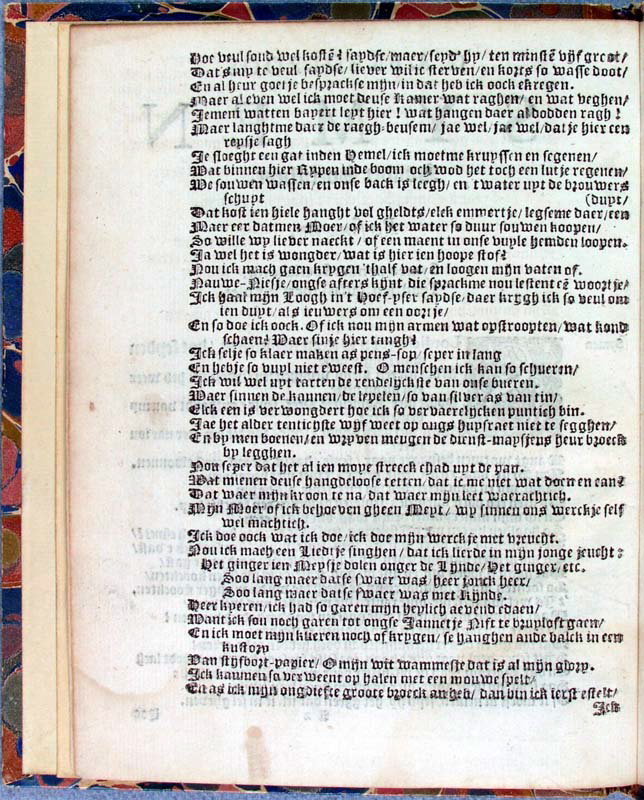 Hoe veul sond wel kostẽ? saydse/maer/seyd' hy/ ten minstẽ vijf groot/
Dat's my te veul saydse/ liever wil ic sterven/en korts so wasse doot/
En al heur goetje besprackse mijn/in dat heb ick oock ekregen.
Maer al even wel ick moet deuse Kamer wat raghen/ en wat veghen/
Jemeni watten bayert leyt hier! wat hangen daer al dodden ragh!
Maer langhtme daer de raegh-beusem/ jae wel/ jae wel/dat je hier een
reysje sagh
Je stoeght een gat inden Hemel/ick moetme kruyssen en segenen/
Wat binnen hier Rypen inde boom och wod het toch een lutje regenen/
We souwen wassen/ en onse back is leegh/ en t water uyt de brouwers
schuyt (duyt/
Dat kost ien hiele hanght vol gheldts/elck emmertje/ legseme daer/een
Maer eer datmen Moer/of ick het water so duur souwen koopen/
So wille wy liever naeckt / of een maent in onse vuyle hemden loopen.
Ja wel het is wongder/ wat is hier ien hoope stof?
Nou ick mach gaen krygen 'thalf vat/ en loogen mijn vaten of.
Nauwe-Niesje/ ongse afters kijnt/ die sprackme nou lestent eẽ woortje/
Ick haal mijn Loogh in't Hoef-yser saydse/ daer krygh ick so veul om
ien duyt/ als ieuwers om een oortje/
En so doe ick oock. Of ick nou mijn armen wat opstroopten/ wat kond
schaen? Waer sinje hier langh?
Ick selje so klaer maken as pens-sop/ seper in lang
En hebje so vuyl niet eweest. O menschen ick kan so schueren/
Ick wil wel uyt tarten de rendelijckste van onse bueren.
Waer sinnen de kannen/ de lepelen/ so van silver as van tin/
Elck een is verwongdert hoe ick so vervaerelijcken puntich bin.
Jae het alder tentichste wijf weet op ongs huysraet niet te segghen/
En by men boenen/ en wryven meugen de dienst-maysjens heur broeck
by legghen.
Nou seper dat het al ien moye streeck ehad uyt de pan.
Wat mienen deuse hangdeloose tetten/ dat ic me niet wat doen en can?
Dat waer mijn kroon te na/ dat waer mijn leet waerachtich.
Mijn Moer of ick behoeven gheen Meyt/ wy sinnen ons werckje self
wel machtich.
Ick doe oock wat ick doe/ ick doe mijn werckje met vreucht.
Nou ick mach een Liedtje singhen / dat ick lierde in mijn jonge jeucht:
Het ginger ien Meysje dolen onger de Lijnde/ Het ginger/ etc.
Soo lang maer datse swaer was/ heer jonck heer/
Soo lang maer datse swaer was met Kijnde.
Heer kyeren/ ick had so garen mijn heylich aevend edaen/
Want ick sou noch garen tot ongse Jannetje Nift te bruyloft gaen/
En ick moet mijn klieren noch of krygen/ se hanghen ande balck in een
kustory
Van styfvort-papier/ O mijn wit wammeste dat is al mijn glory.
Ick kannen so verweent op halen met een mouwe spelt/
En as ick mijn ongdiefte groote broeck an heb/ dan bin ick ierst estelt/
Ick